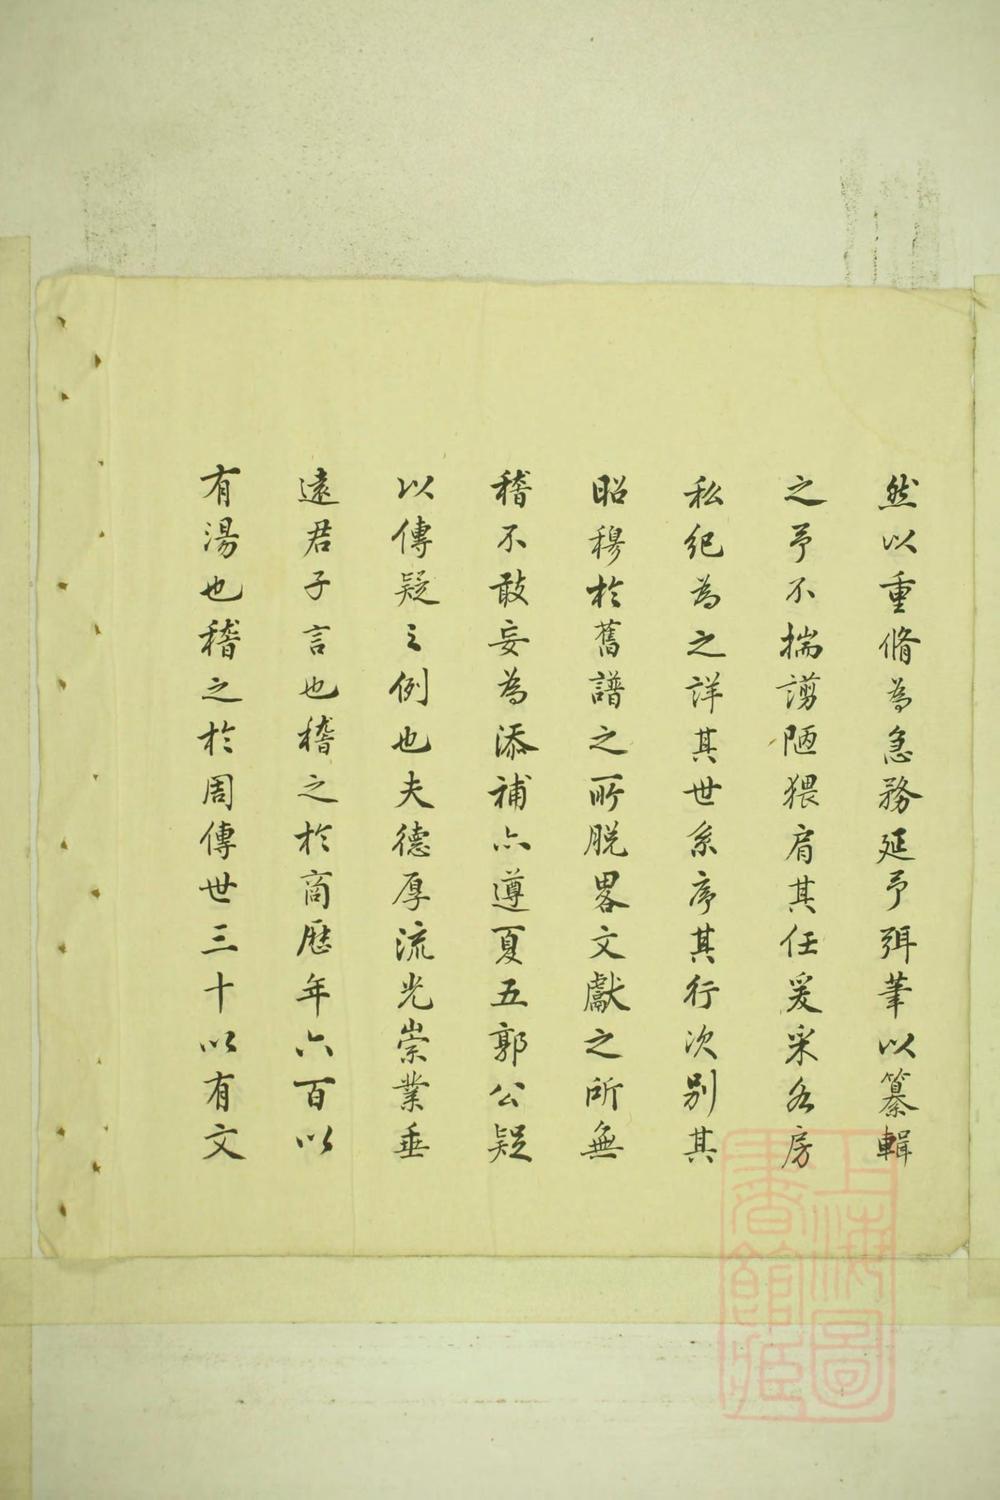 然以重脩為急務延予弭筆以纂輯
之予不揣謭陋猥肩其任爰采各房
私紀為之詳其世系序其行次別其
昭穆於舊譜之所脫畧文獻之所無
稽不敢妄為添補亦遵夏五郭公疑
以傳疑之例也夫德厚流光崇業垂
遠君子言也稽之於商歷年六百以
有湯也稽之於周傳世三十以有文
上海圖
書館藏